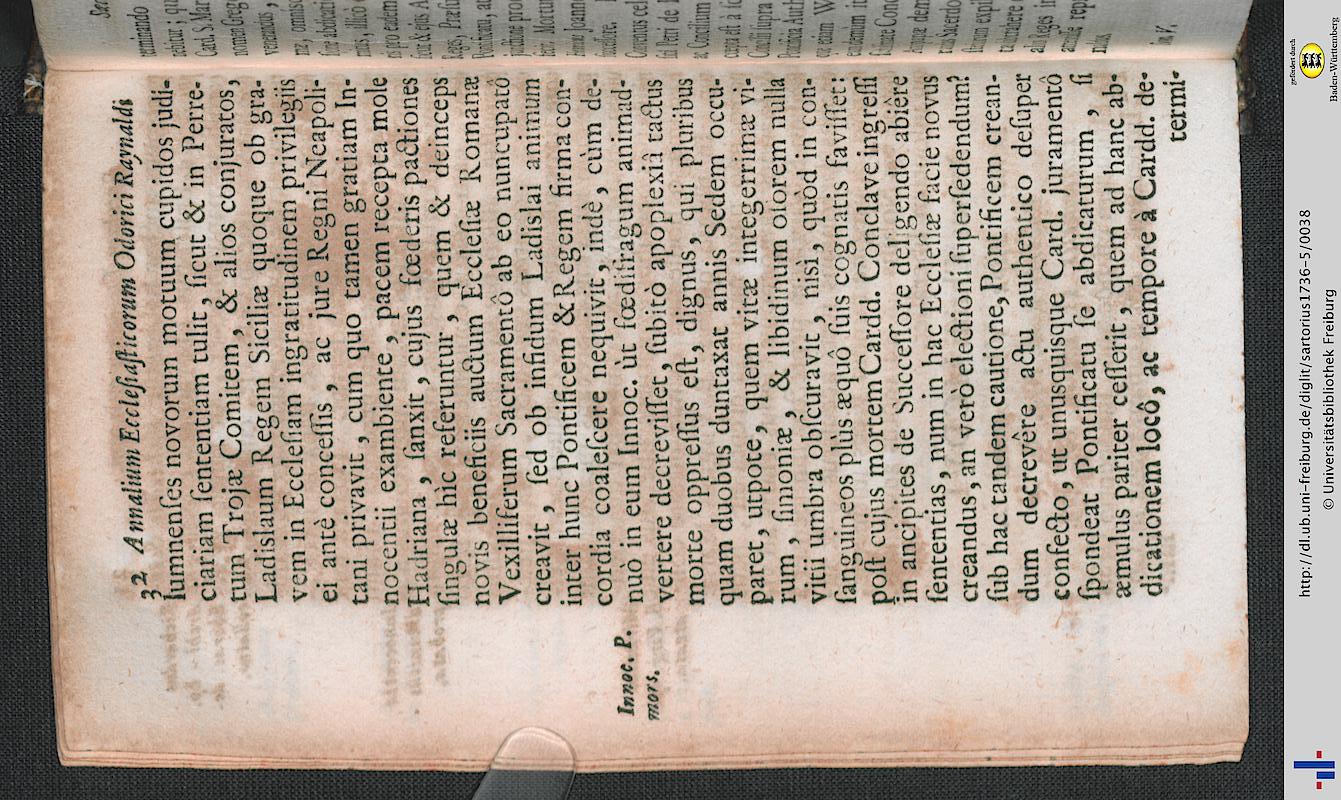 32 Annalium Ecclesiasticorum Odorici Raynaldi
lumnenſes novorum motuum cupidos judi-
ciariam ſententiam tulit, ſicut & in Perre-
tum Trojæ Comitem, & alios conjuratos,
Ladislaum Regem Siciliæ quoque ob gra-
vem in Eccleſiam ingratitudinem privilegiis
ei antè conceſſis, ac jure Regni Neapoli-
tani privavit, cum quo tamen gratiam In-
nocentii exambiente, pacem recepta mole
Hadriana, ſanxit, cujus fœderis pactiones
ſingulæ hic referuntur, quem & deinceps
novis beneficiis auctum Eccleſiæ Romanæ
Vexilliferum Sacramentô ab eo nuncupatô
creavit, ſed ob infidum Ladislai animum
inter hunc Pontificem & Regem firma con-
cordia coaleſcere nequivit, indè, cùm de-
nuò in eum Innoc. ùt fœdifragum animad-
vertere decreviſſet, ſubitò apoplexiâ tactus
morte oppreſſus eſt, dignus, qui pluribus
quam duobus duntaxat annis Sedem occu-
paret, utpote, quem vitæ integerrimæ vi-
rum, ſimoniæ, & libidinum oſorem nulla
vitii umbra obſcuravit, niſi, quòd in con-
ſanguineos plùs æquô ſuis cognatis faviſſet:
poſt cujus mortem Cardd. Conclave ingreſſi
in ancipites de Succeſſore deligendo abiêre
ſententias, num in hac Eccleſiæ facie novus
creandus, an verò electioni ſuperſedendum?
ſub hac tandem cautione, Pontificem crean-
dum decrevêre actu authentico deſuper
confecto, ut unusquisque Card. juramentô
ſpondeat Pontificatu ſe abdicaturum, ſi
æmulus pariter ceſſerit, quem ad hanc ab-
dicationem locô, ac tempore à Cardd. de-
termi-
Innoc. P.
mors.
http://dl.ub.uni-freiburg.de/diglit/sartorius1736-5/0038
© Universitätsbibliothek Freiburg
gefördert durch
Baden-Württemberg